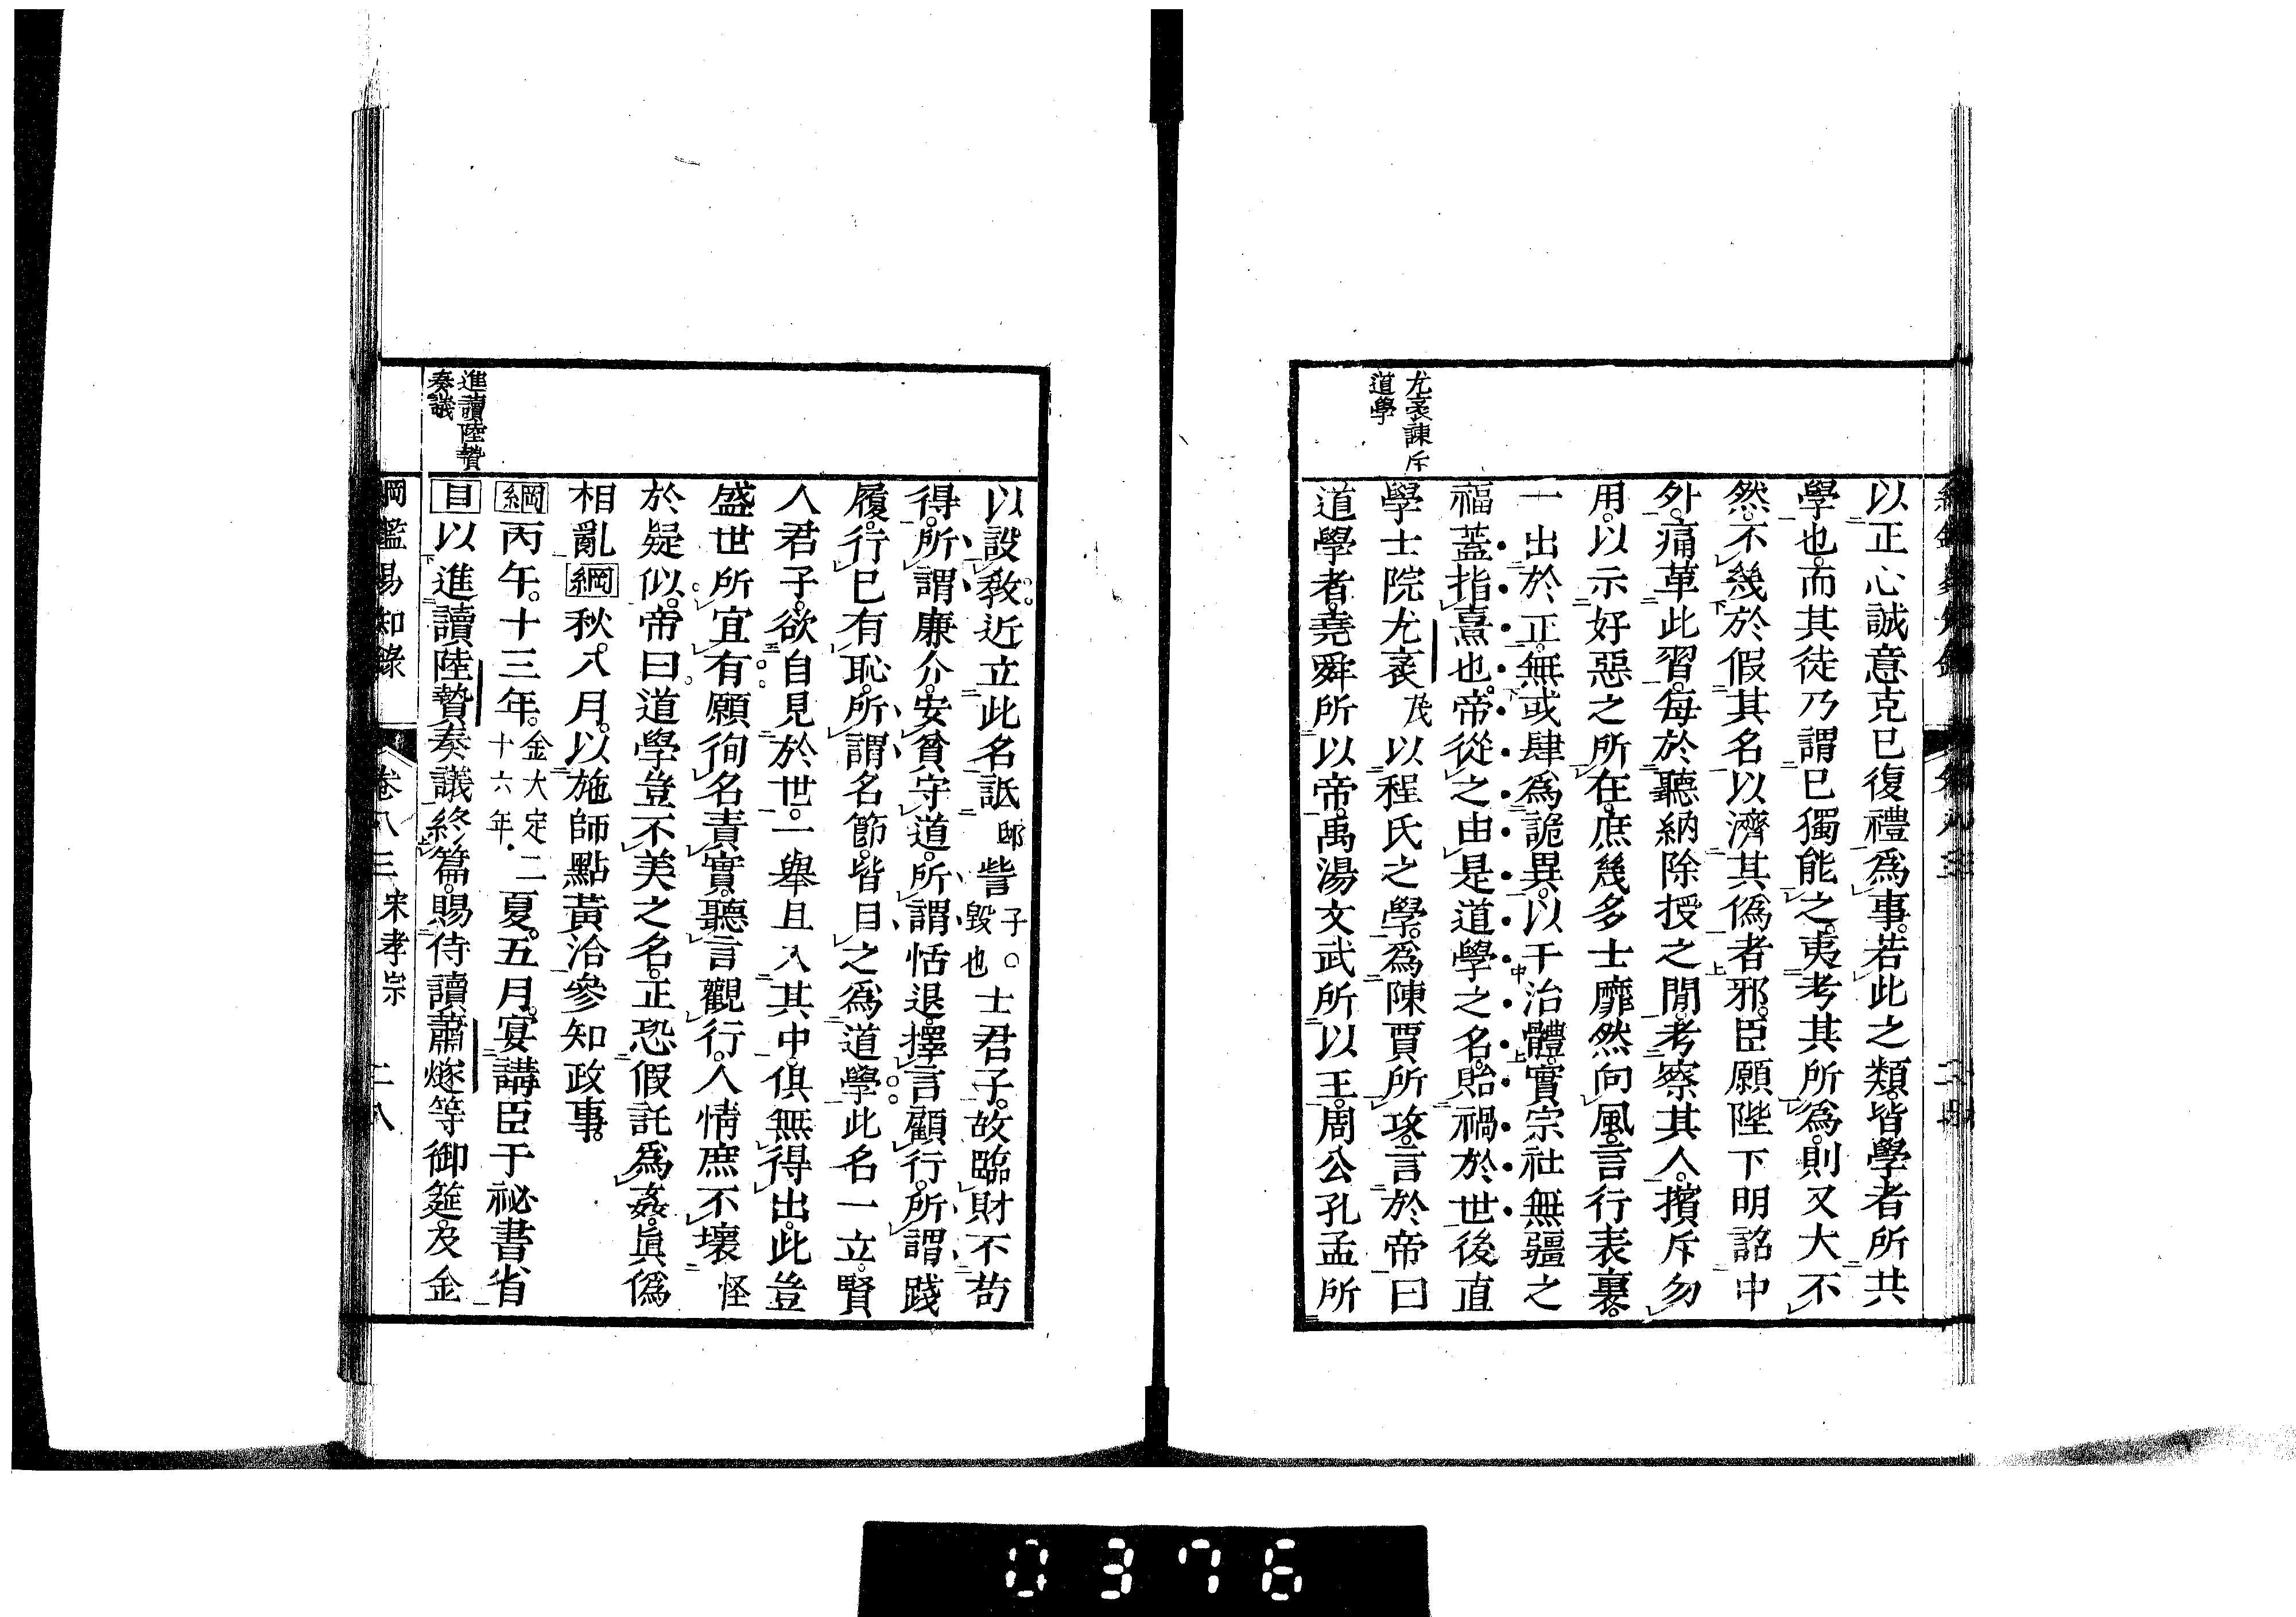 以正心誠意克己復禮爲事。若此之類。皆學者所共
學也。而其徒乃謂己獨能之。夷考其所爲。則又大不
然。不幾於假其名以濟其僞者邪。臣願陛下明詔中
外。痛革此習。每於聽納除授之閒。考察其人。擯斥勿
用。以示好惡之所在。庶幾多士靡然向風。言行表裏。
一出於正。無或肆爲詭異。以干治體。實宗社無疆之
福。蓋指熹也。帝從之。由是道學之名。貽禍於世。後直
尤袤諫斥
道學
學士院尤袤茂以程氏之學。爲陳賈所攻。言於帝曰
道學者。堯舜所以帝。禹湯文武所以王。周公孔孟所
以設教。近立此名詆邸訾子。○毀也士君子。故臨財不苟
得。所謂廉介。安貧守道。所謂恬退。擇言顧行。所謂踐
履。行己有恥。所謂名節。皆目之爲道學。此名一立。賢
人君子。欲自見於世。一舉且入其中。俱無得出。此豈
盛世所宜有。願徇名責實。聽言觀行。人情庶不壞怪
於疑似。帝曰。道學豈不美之名。正恐假託爲姦。眞僞
相亂綱秋。八月。以施師點黃洽參知政事。
綱丙午。十三年。金大定二十六年。夏。五月。宴講臣于祕書省
進讀陸贄
奏議
目以進讀陸贄奏議終篇。賜侍讀蕭燧等御筵。及金
綱鑑易知錄 卷八三 宋孝宗 二八
0376